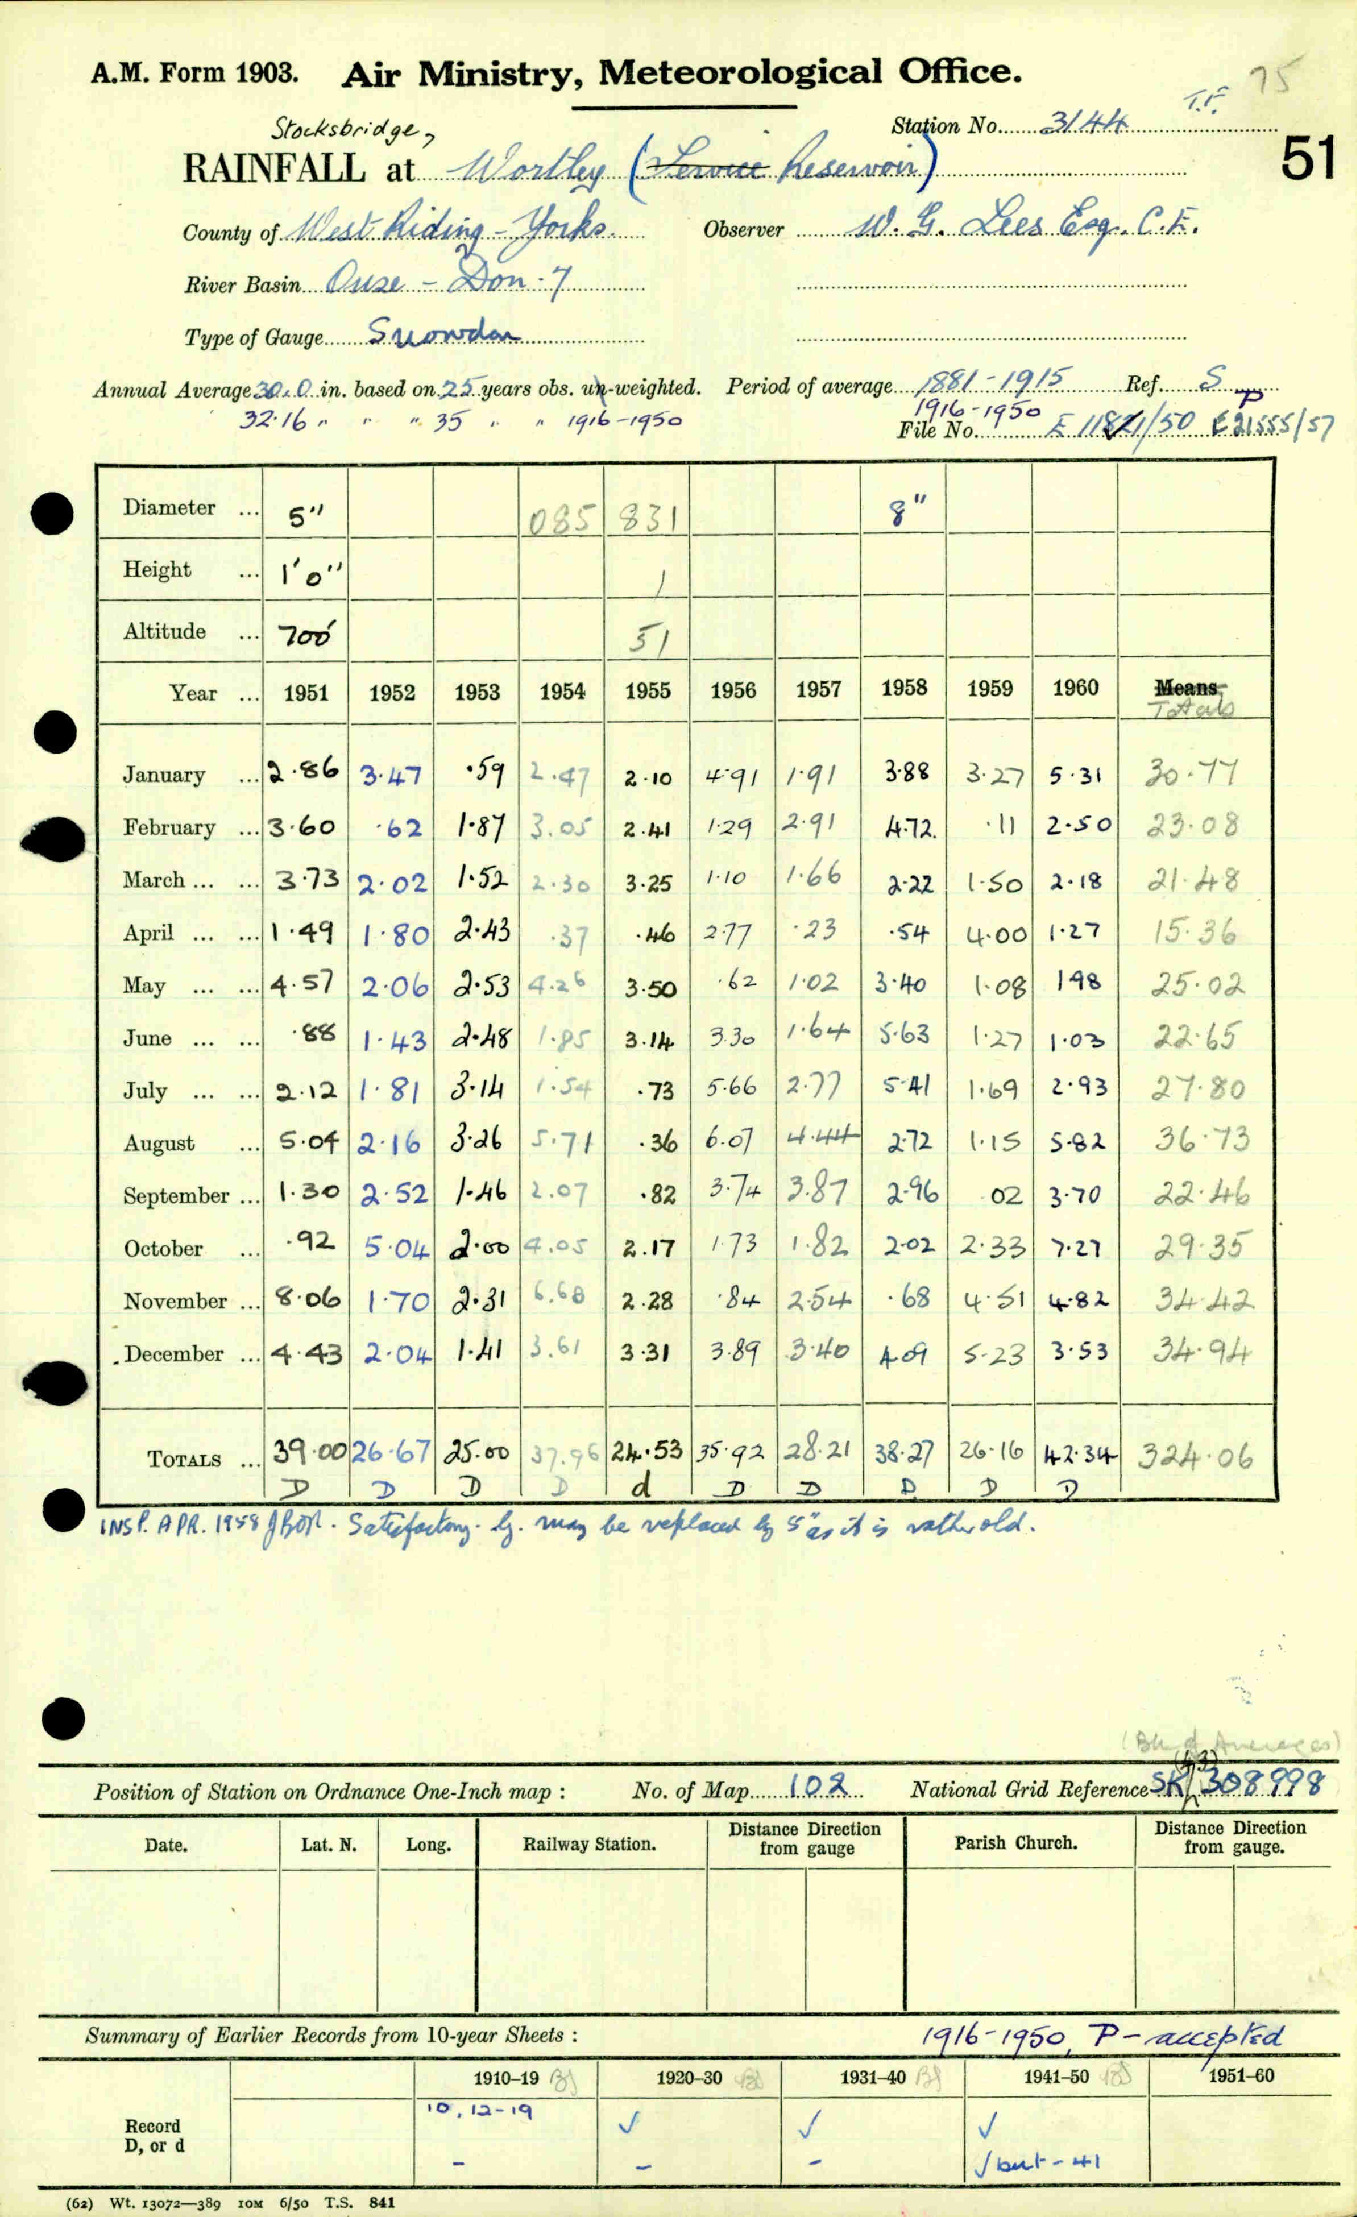 A.M. Form 1903. Air Ministry, Meteorological Office. 75
T.F.
Station No. 3144
51
Stocksbridge,
RAINFALL at Wortley (Service Reservoir)
County of West Riding - Yorks. Observer W. G. Lees Esq. C.E.
River Basin Ouse - Don - 7
Type of Gauge Snowdon
Annual Average 30.0 in. based on 25 years obs. un-weighted. Period of average 1881-1915 Ref. S
32.16 " " " 35 " " 1916-1950 1916-1950 P
File No. E 11821/50 E21555/57
Diameter ... 5" 085 831 8"
Height ... 1'0" 1
Altitude ... 700' 51
Year ... 1951 1952 1953 1954 1955 1956 1957 1958 1959 1960 Means
Totals
January ... 2.86 3.47 .59 2.47 2.10 4.91 1.91 3.88 3.27 5.31 30.77
February ... 3.60 .62 1.87 3.05 2.41 1.29 2.91 4.72 .11 2.50 23.08
March ... ... 3.73 2.02 1.52 2.30 3.25 1.10 1.66 2.22 1.50 2.18 21.48
April ... ... 1.49 1.80 2.43 .37 .46 2.77 .23 .54 4.00 1.27 15.36
May ... ... 4.57 2.06 2.53 4.26 3.50 .62 1.02 3.40 1.08 198 25.02
June ... ... .88 1.43 2.48 1.85 3.14 3.30 1.64 5.63 1.27 1.03 22.65
July ... ... 2.12 1.81 3.14 1.54 .73 5.66 2.77 5.41 1.69 2.93 27.80
August ... 5.04 2.16 3.26 5.71 .36 6.07 4.44 2.72 1.15 5.82 36.73
September ... 1.30 2.52 1.46 2.07 .82 3.74 3.87 2.96 .02 3.70 22.46
October ... .92 5.04 2.00 4.05 2.17 1.73 1.82 2.02 2.33 7.27 29.35
November ... 8.06 1.70 2.31 6.68 2.28 .84 2.54 .68 4.51 4.82 34.42
December ... 4.43 2.04 1.41 3.61 3.31 3.89 3.40 4.09 5.23 3.53 34.94
TOTALS ... 39.00 26.67 25.00 37.96 24.53 35.92 28.21 38.27 26.16 42.34 324.06
D D D D d D D D D D
INSP. APR. 1958 Satisfactory. G. may be replaced by 5" as it is rather old.
(Bk of Averages)
(43)
Position of Station on Ordnance One-Inch map : No. of Map 102 National Grid Reference SK 308998
Date. Lat. N. Long. Railway Station. Distance from Direction gauge Parish Church. Distance from Direction gauge.
Summary of Earlier Records from 10-year Sheets : 1916-1950, P - accepted
1910–19 1920–30 1931–40 1941–50 1951–60
Record 10, 12-19 ✓ ✓ ✓
D, or d - - - ✓ but - 41
(62) Wt. 13072—389 10M 6/50 T.S. 841